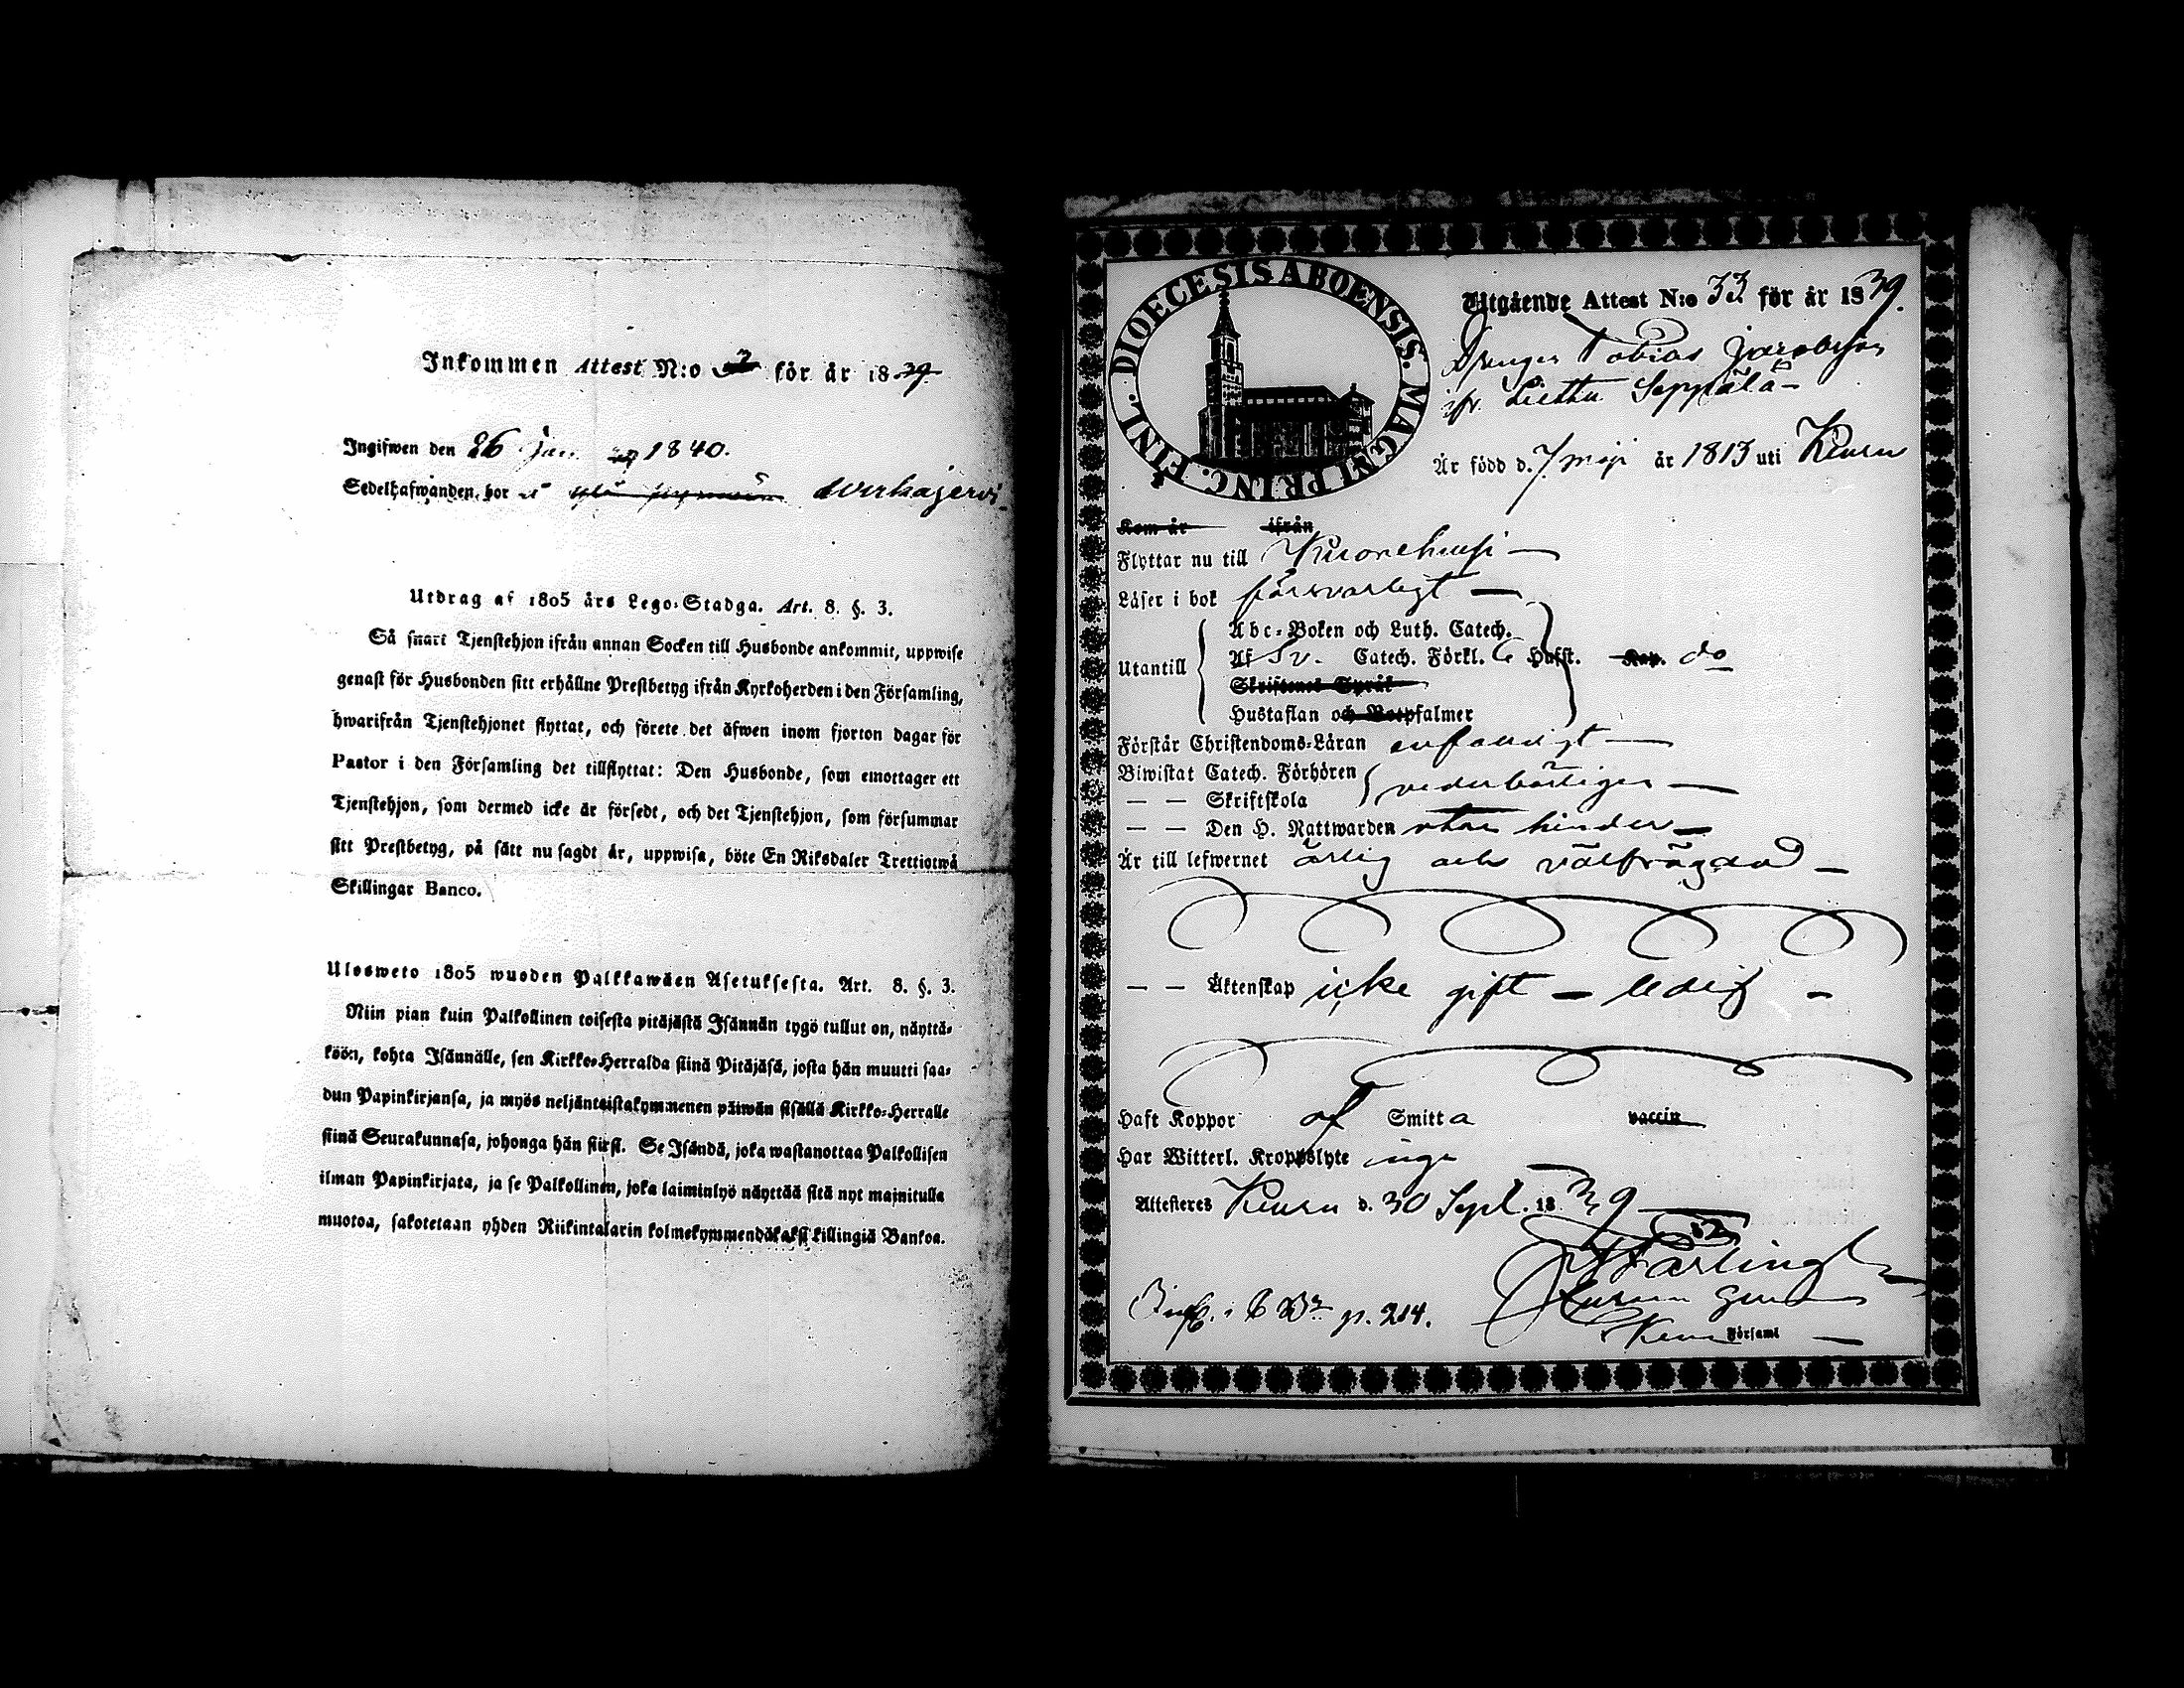 Inkommen Attest N:o för år 1839
Ingifwen den 26 Jan. 1840.
Sedelhafwanden bor
Utdrag af 1805 års Lego-Stadga. Art. 8. §. 3.
Så snart Tjenstehjon ifrån annan Socken till Husbonde ankommit, uppwise
genast för Husbonden sitt erhållne Prestbetyg ifrån Kyrkoherden i den Församling,
hwarifrån Tjenstehjonet flyttat, och förete det äfwen inom fjorton dagar för
Pastor i den Församling det tillflyttat: Den Husbonde, som emottager ett
Tjenstehjon, som dermed icke är försedt, och det Tjenstehjon, som försummar
sitt Prestbetyg, på sätt nu sagdt är, uppwisa, böte En Riksdaler Trettiotwå
Skillingar Banco.
Ulosweto 1805 wuoden Palkkawäen Asetuksesta. Art. 8. §. 3.
Niin pian kuin Palkollinen toisesta pitäjästä Isännän tygö tullut on, näyttä-
köön, kohta Isännälle, sen Kirkko-Herralda siinä Pitäjäsä, josta hän muutti saa-
dun Papinkirjansa, ja myös neljäntoistakymmenen päiwän sisällä Kirkko-Herralle
siinä Seurakunnasa, johonga hän siirsi. Se Isändä, joka wastanottaa Palkollisen
ilman Papinkirjata, ja se Palkollinen, joka laiminlyö näyttää sitä nyt mainitulla
muotoa, sakotetaan yhden Riikintalarin kolmekymmendäkaksi killingiä Bankoa.
DIOECESIS ABOENSIS. MAGNI PRINC. FINL.
Utgående Attest N:o 33 för år 1839.
Drengen Tobias Jacobsson
ifr. Liettu Seppälä
Är född d. 7 maji år 1813 uti Keuru
Kom år ifrån
Flyttar nu till Kuorehusi
Läser i bok försvarligt
Abc-Boken och Luth. Catech.
Utantill Af Sv. Catech. Förkl. Hufst. Kap. do
Skriftenes Språk
Hustaflan och Botpsalmer
Förstår Christendoms-Läran enfaldigt
Biwistat Catech. Förhören
— — Skriftskola vederbörligen
— — Den H. Nattwarden utan hinder
Är till lefwernet ärlig och välfrägdad
— — Äktenskap icke gift — ledig
Haft Koppor af Smitta vaccin
Har Witterl. Kroppslyte inga
Attesteres Keuru d. 30 Sept. 1839
p. 214.
Församl